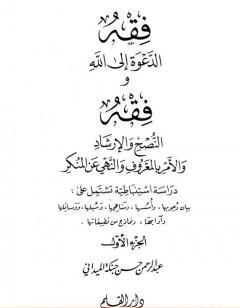 فِقْهُ
الدَّعْوَةِ إِلَى اللَّهِ
وَ
فِقْهُ
النُّصْحِ وَالإِرْشَادِ
وَالأَمْرِ بِالمَعْرُوفِ وَالنَّهْيِ عَنِ المُنْكَرِ
دِرَاسَةٌ اسْتِنْبَاطِيَّةٌ تَشْتَمِلُ عَلَى :
بيان وجوبها، وأسسها، ومناهجها، وسُبلها، ووسائلها
وآدابها، ونماذج من تطبيقاتها
الجزء الأول
عبد الرحمن حسن حبنكة الميداني
دار القلم